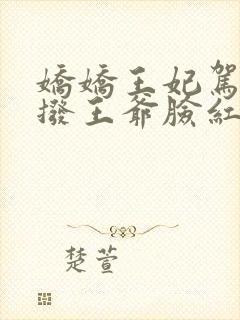 嬌嬌王妃駕
撥王爺臉紅
楚萱